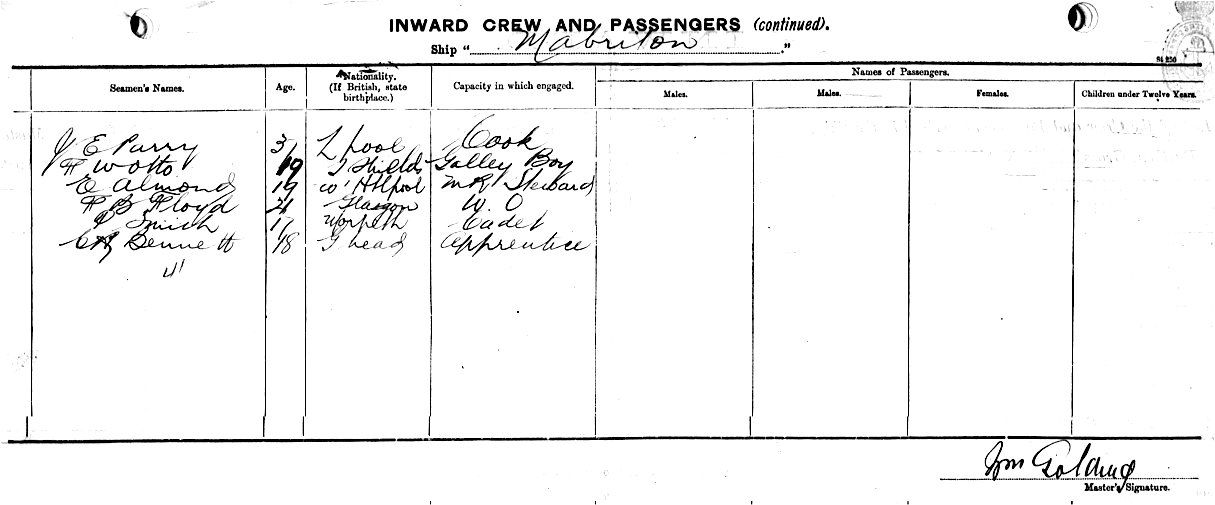 INWARD CREW AND PASSENGERS (continued).
Ship "Mabriton."
84 250
Names of Passengers.
Seamen's Names. Age. Nationality. (If British, state birthplace.) Capacity in which engaged. Males. Males. Females. Children under Twelve Years.
J E Parry 31 L'pool Cook
F W Otto 19 Shields Galley Boy
E Almond 19 W' H'lpool M R Steward
F B Floyd 21 Glasgow W. O
Smith 17 Morpeth Cadet
Bennett 18 G head Apprentice
Wm Golding
Master's Signature.